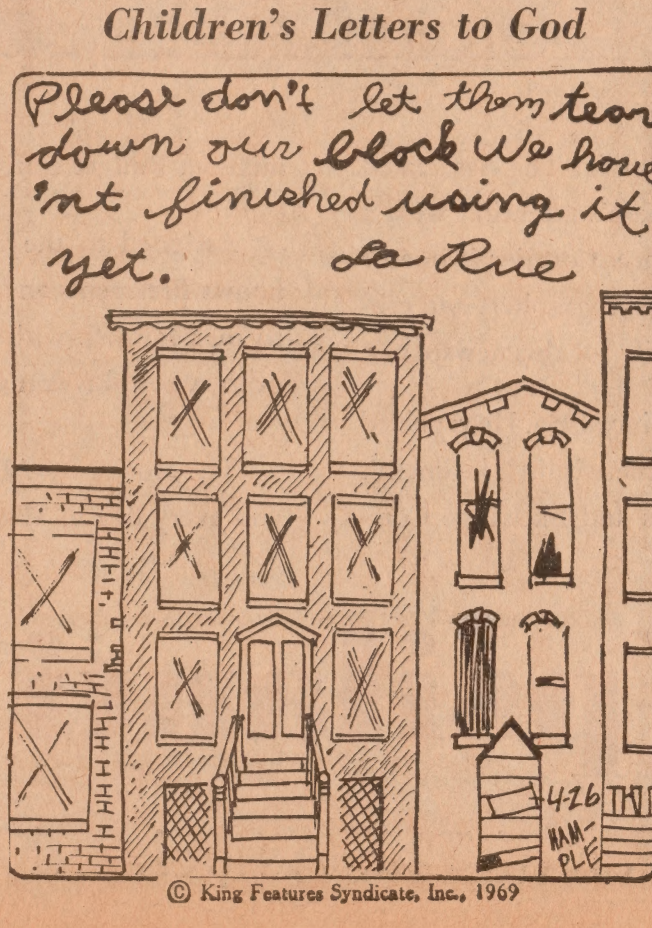 Children's Letters to God
Please don't let them tear
down our block We have
'nt finished using it
yet. La Rue
4-26
HAM-
PLE
© King Features Syndicate, Inc., 1969